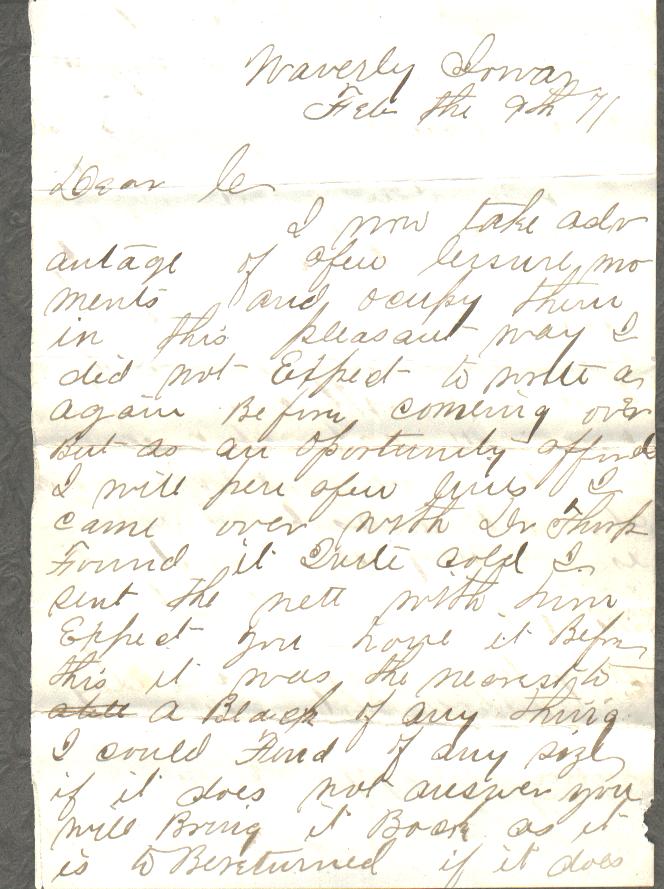 Waverly Iowa
Feb the 9th 71
Dear
I now take adv
antage of afew leisure mo
ments and ocupy them
in this pleasant way I
did not Expect to write
again Before comeing over
But as an oportunity affords
I will pen afew lines I
came over with Dr Thorp
Found it Quite cold I
sent the nett with him
Expect you have it Before
this it was the nearest to
a Black of any thing
I could Find of any size
if it does not answer you
will Bring it Back as it
is to Bereturned if it does